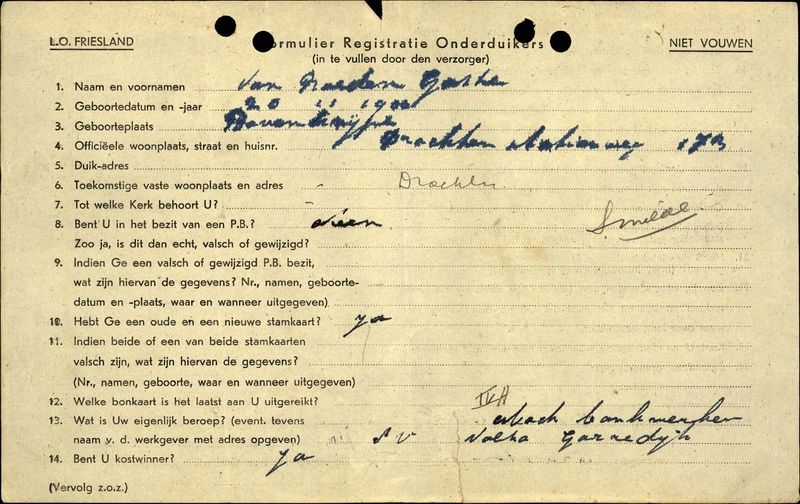 L.O. FRIESLAND
Formulier Registratie Onderduikers
NIET VOUWEN
(in te vullen door den verzorger)
1. Naam en voornamen van
2. Geboortedatum en -jaar 20 11
3. Geboorteplaats
4. Officiëele woonplaats, straat en huisnr. Drachten Stationsweg
5. Duik-adres
6. Toekomstige vaste woonplaats en adres - Drachten
7. Tot welke Kerk behoort U? -
8. Bent U in het bezit van een P.B.?
Zoo ja, is dit dan echt, valsch of gewijzigd?
9. Indien Ge een valsch of gewijzigd P.B. bezit,
wat zijn hiervan de gegevens? Nr., namen, geboorte-
datum en -plaats, waar en wanneer uitgegeven)
10. Hebt Ge een oude en een nieuwe stamkaart? ja
11. Indien beide of een van beide stamkaarten
valsch zijn, wat zijn hiervan de gegevens?
(Nr., namen, geboorte, waar en wanneer uitgegeven)
12. Welke bonkaart is het laatst aan U uitgereikt?
13. Wat is Uw eigenlijk beroep? (event. tevens bankwerker
naam v. d. werkgever met adres opgeven) Gorredijk
14. Bent U kostwinner? ja
(Vervolg z.o.z.)